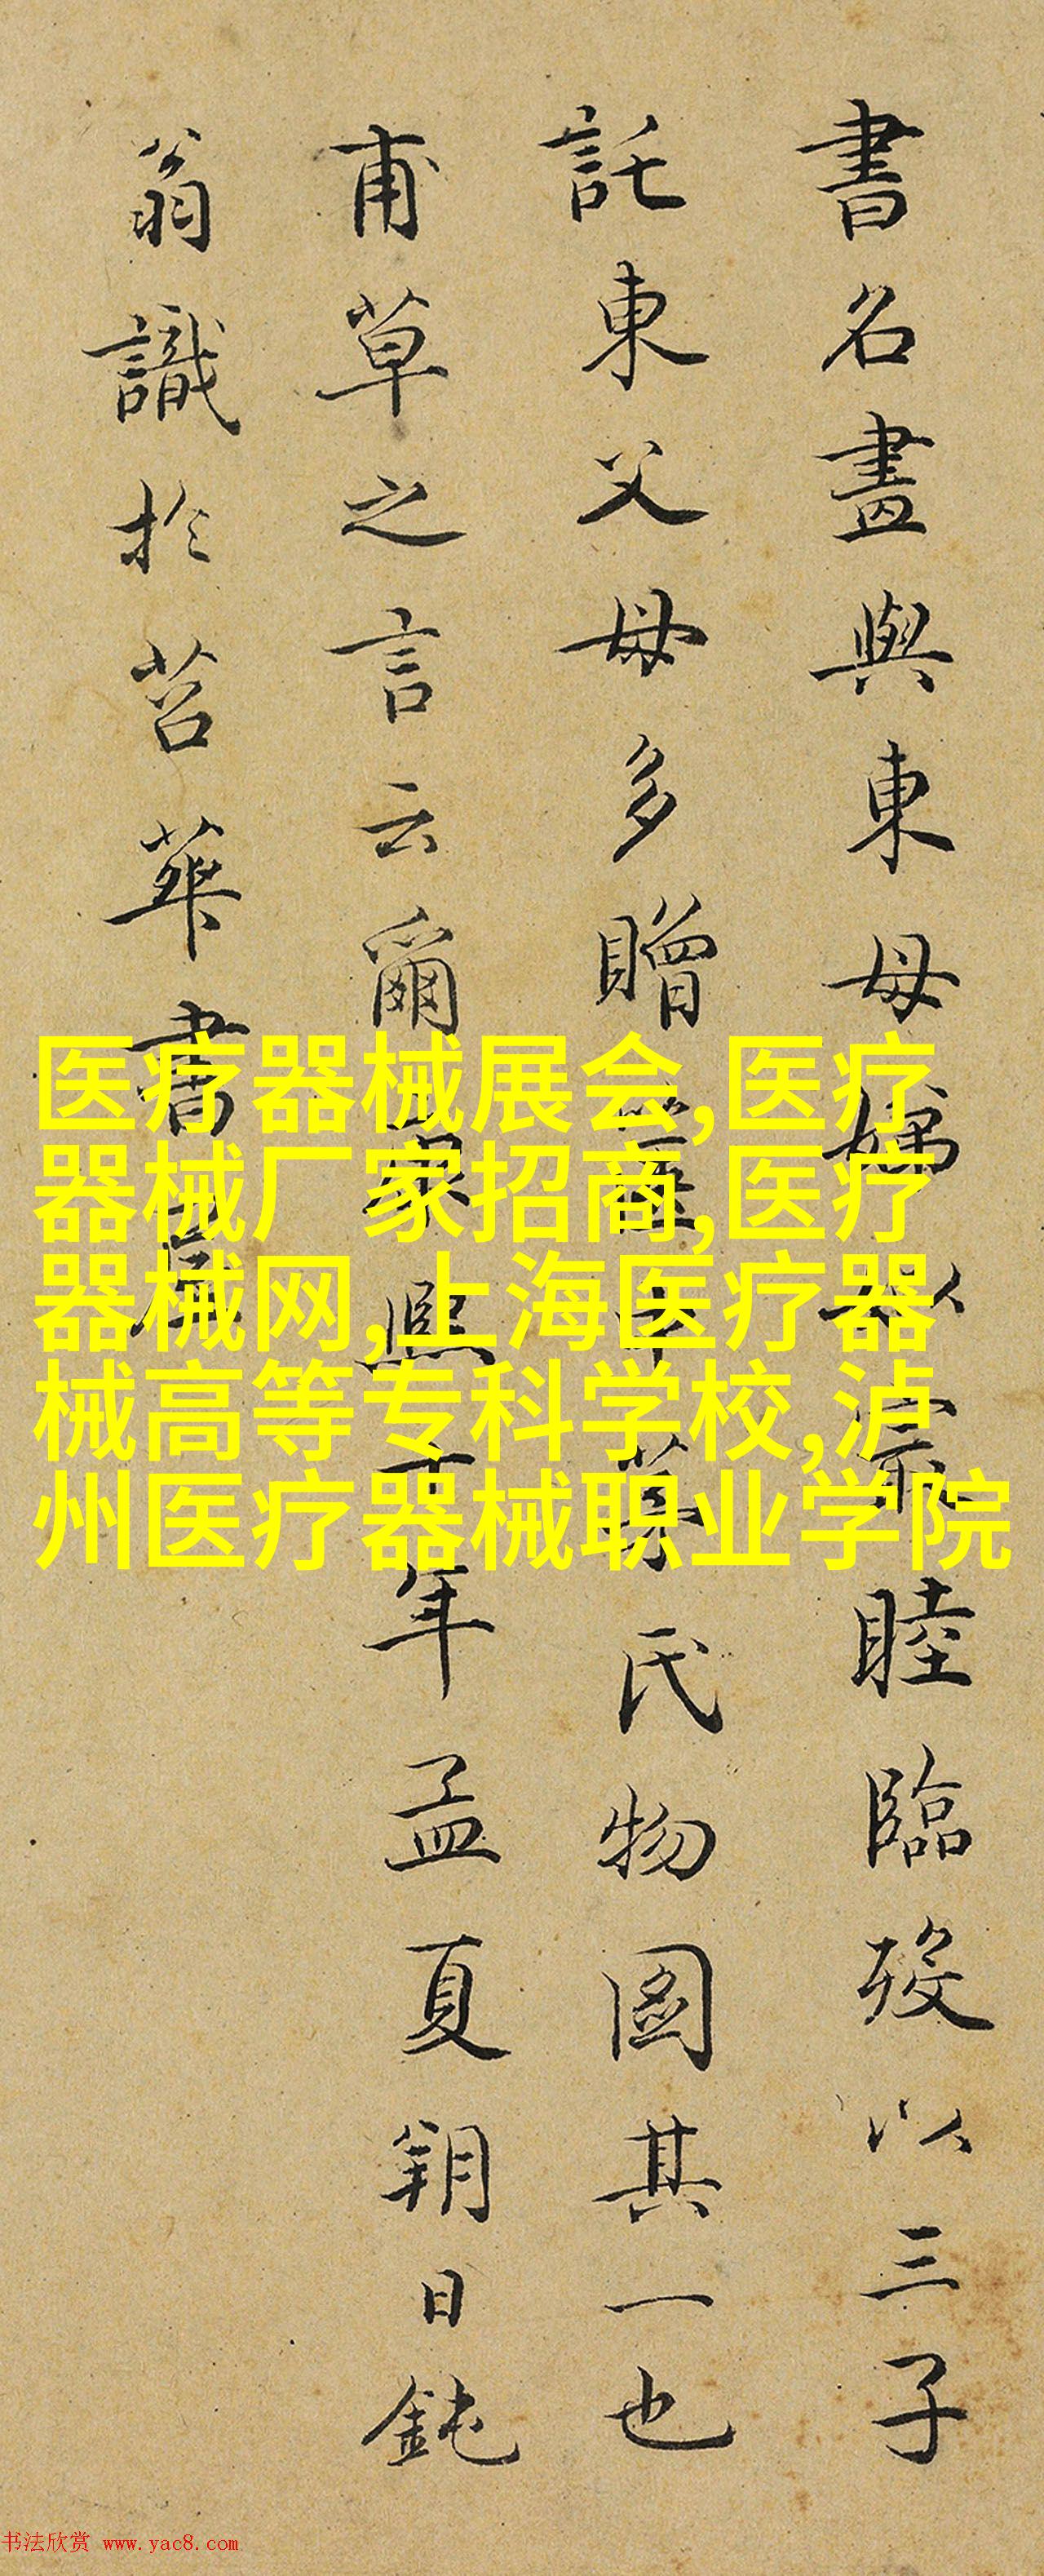 書名畫與東母姨以宗睦臨歿以三子
託東父母多贈以 氏物圖其一也
甫草之言云爾康熙十年孟夏朔日鈍
翁識於苕華書屋
医疗器械展会,医疗
器械厂家招商,医疗
器械网,上海医疗器
械高等专科学校,泸
州医疗器械职业学院
书法欣赏 www.yac8.com